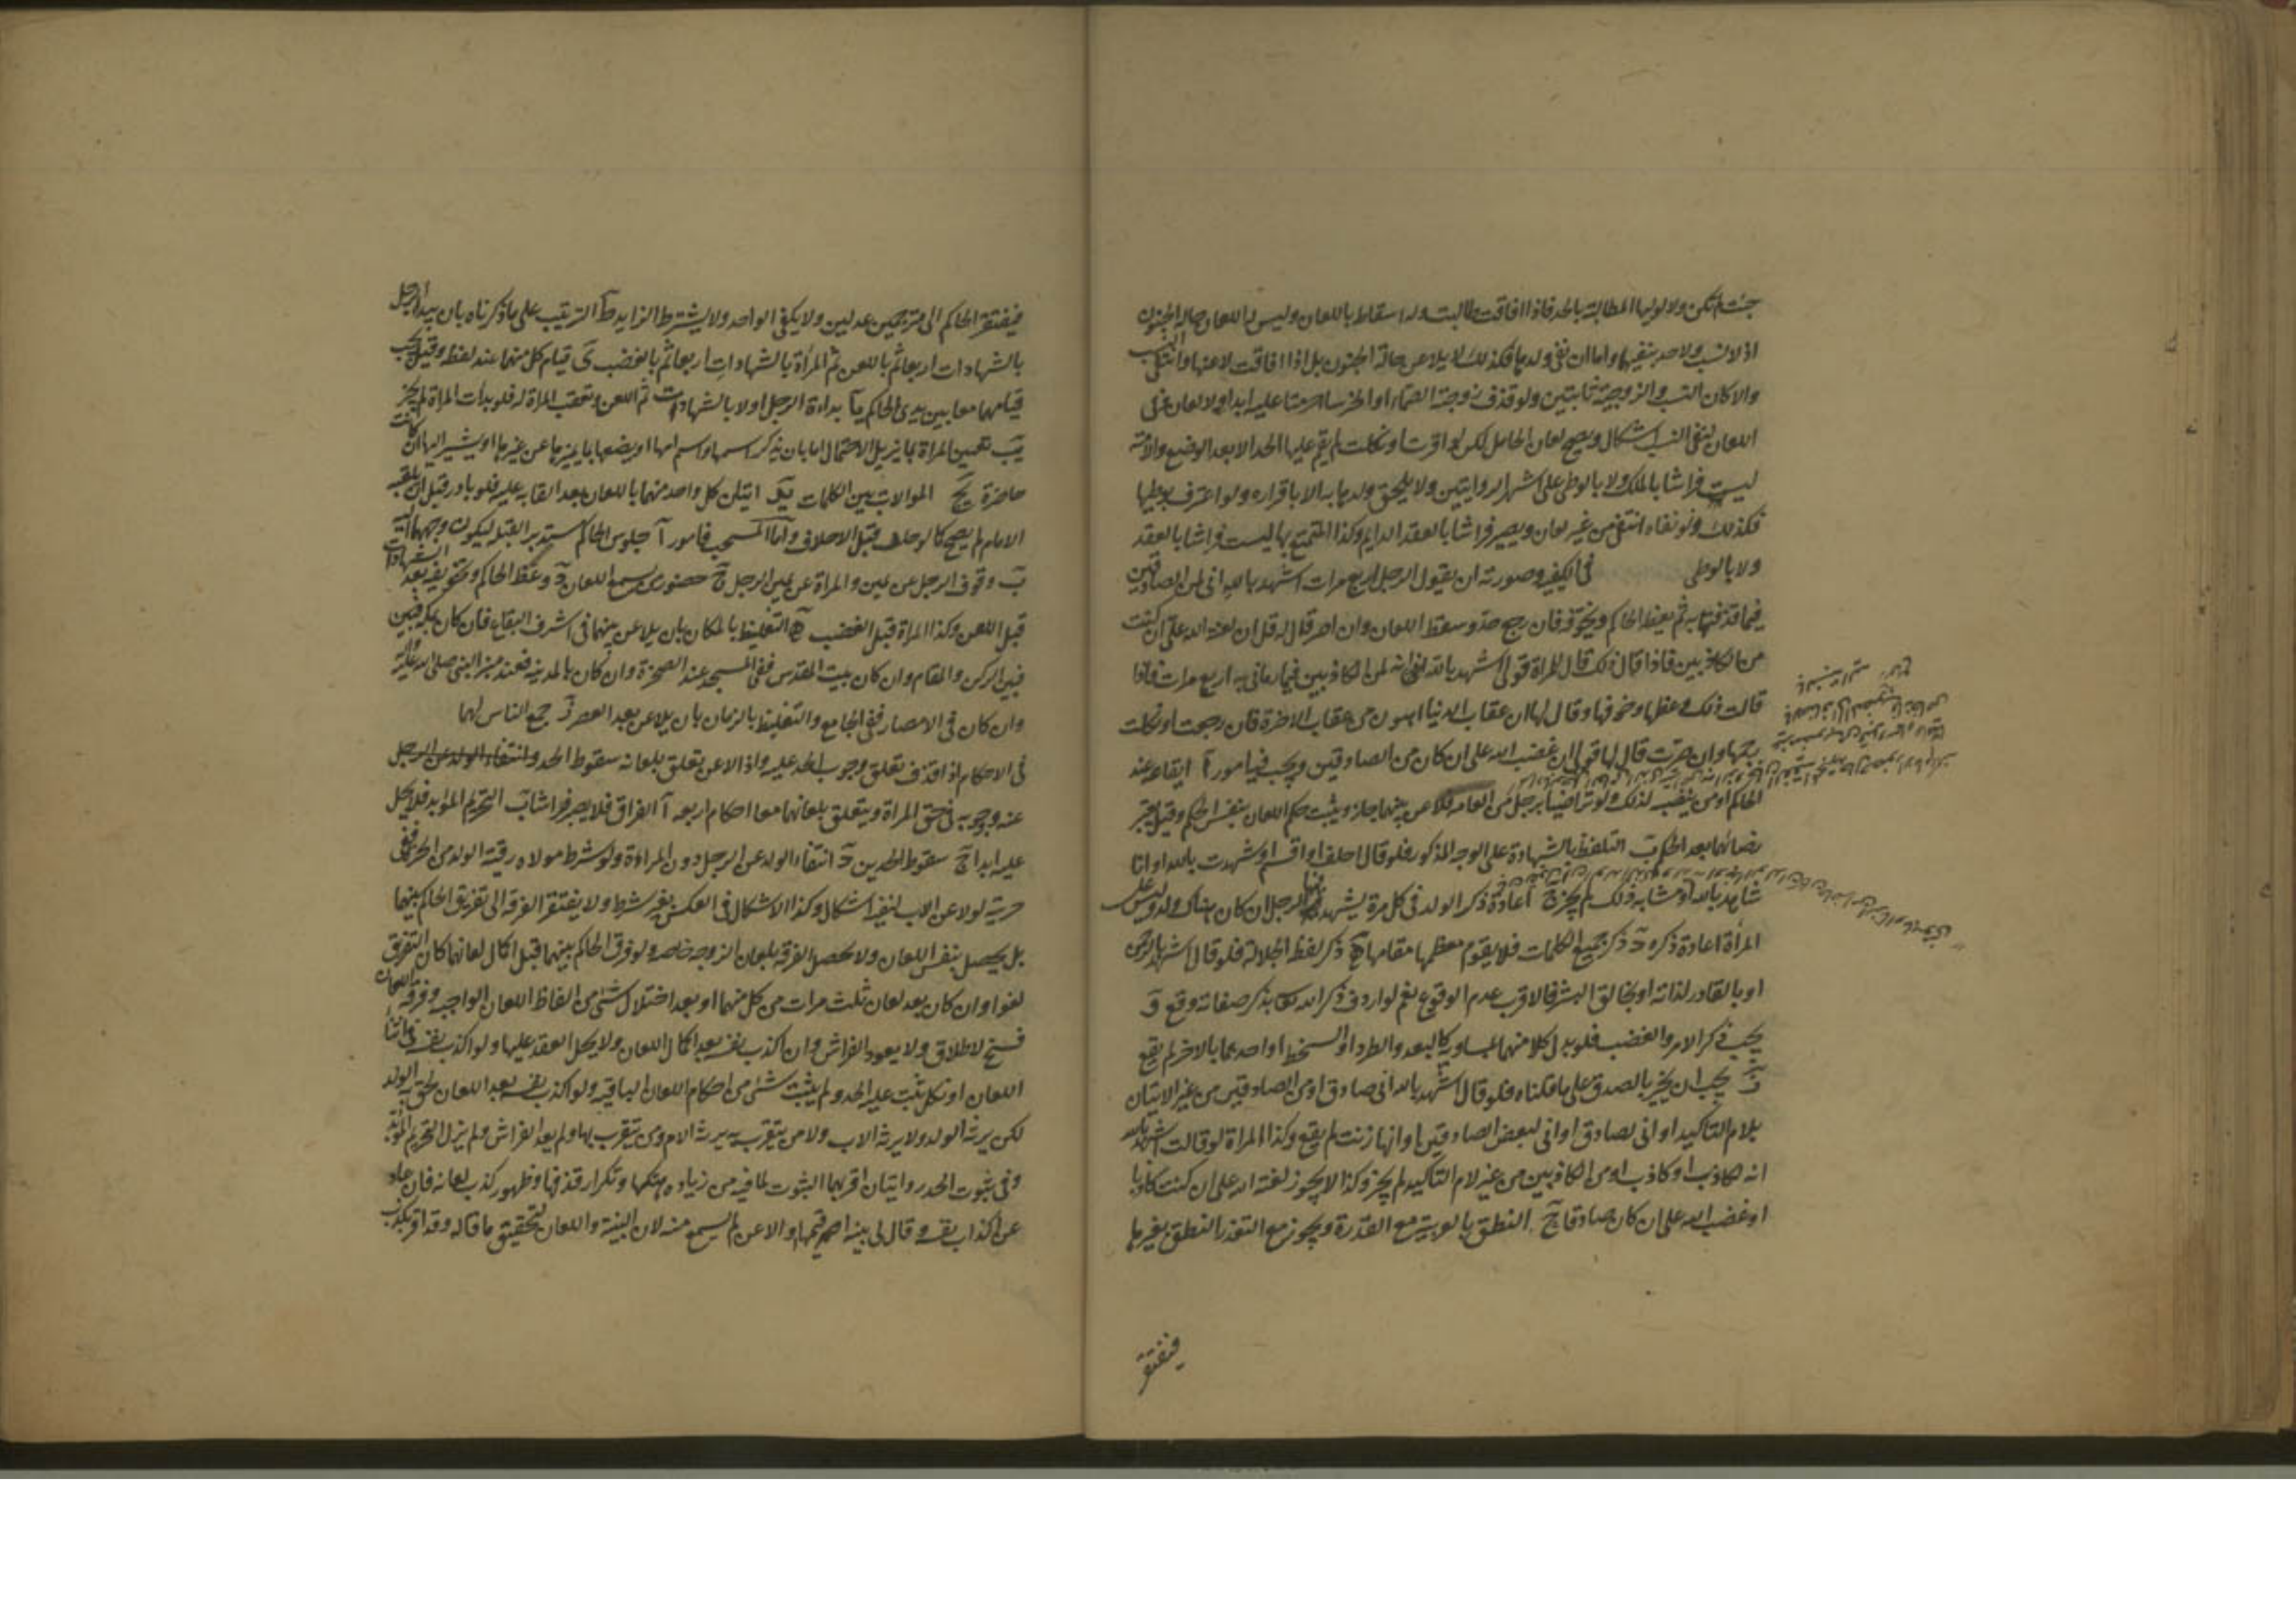 جنت لم تكن ولا لوليها المطالبة بالحد فاذا افاقت طالبت وله اسقاطه باللعان وليس له اللعان حالة الجنون
اذ لا نسب ولا حد ينفيهما واما ان نفى ولدها فكذلك لا يلاعن حالة الجنون بل اذا افاقت لاعنها وانتفى النسب
والا كان النسب والزوجية ثابتتين ولو قذف زوجته الصماء او الخرساء حرمتا عليه ابدا ولا لعان وفي
اللعان لنفي النسب اشكال ويصح لعان الحامل لكن لو اقرت او نكلت لم يقم عليها الحد الا بعد الوضع والامة
ليست فراشا بالملك ولا بالوطى على اشهر الروايتين ولا يلحق ولدها به الا باقراره ولو اعترف بوطيها
فكذلك ولو نفاه انتفى من غير لعان ويصير فراشا بالعقد الدايم وكذا المتمتع بها ليست فراشا بالعقد
ولا بالوطى في الكيفيه وصورته ان يقول الرجل اربع مرات اشهد بالله انى لمن الصادقين
فيما قذفتها به ثم يعظه الحاكم ويخوفه فان رجع حد وسقط اللعان وان اصر قال له قل ان لعنة الله على ان كنت
من الكاذبين فاذا قال ذلك قال للمراة قولى اشهد بالله انه لمن الكاذبين فيما رمانى به اربع مرات فاذا
قالت ذلك وعظها وخوفها وقال لها ان عقاب الدنيا اهون من عقاب الاخرة فان رجعت او نكلت
رجمها وان اصرت قال لها قولى ان غضب الله على ان كان من الصادقين ويجب فيه امور آ ايقاعه عند
الحاكم او من ينصبه لذلك ولو تراضيا برجل من العامه فلاعن بينهما جاز ويثبت حكم اللعان بنفس الحكم وقيل يعتبر
رضائهما بعد الحكم ب التلفظ بالشهادة على الوجه المذكور فلو قال احلف او اقسم او شهدت بالله او انا
شاهد بالله او ما شابه ذلك لم يجز ج اعادة ذكر الولد في كل مرة يشهد فيها الرجل ان كان هناك ولد وليس على
المرأة اعادة ذكره د ذكر جميع الكلمات فلا يقوم معظمها مقامها ه ذكر لفظ الجلالة فلو قال اشهد بالرحمن
او بالقادر لذاته او بخالق البشر فالاقرب عدم الوقوع نعم لو اردف ذكر الله تعالى بذكر صفاته وقع و
يجب ذكر اللعن والغضب فلو بدل كلا منهما بمساويه كالبعد والطرد او السخط او احدهما بالاخر لم يقع
ز يجب ان يخبر بالصدق على ما قلناه فلو قال اشهد بالله انى صادق او من الصادقين من غير الاتيان
بلام التاكيد او انى لصادق او انى لبعض الصادقين او انها زنت لم يقع وكذا المراة لو قالت اشهد بالله
انه لكاذب او كاذب او من الكاذبين من غير لام التاكيد لم يجز وكذا لا يجوز لعنة الله على ان كنت كاذبا
او غضب الله على ان كان صادقا ح النطق بالعربية مع القدرة ويجوز مع التعذر النطق بغيرها
فيفتقر
فيفتقر الحاكم الى مترجمين عدلين ولا يكفى الواحد ولا يشترط الزايد ط الترتيب على ما ذكرناه بان يبدأ الرجل
بالشهادات اربعا ثم باللعن ثم المرأة بالشهادات اربعا ثم بالغضب ى قيام كل منهما عند لفظه وقيل يجب
قيامهما معا بين يدى الحاكم يا بداءة الرجل اولا بالشهادات ثم اللعن وتعقب المراة له فلو بدات المراة لم يجز
يب تعيين المراة بما يزيل الاحتمال اما بان يذكر اسمها واسم ابيها او يصفها بما يميزها عن غيرها او يشير اليها ان كانت
حاضرة يج الموالات بين الكلمات يد اتيان كل واحد منهما باللعان بعد القائه عليه فلو بادر قبل ان يلقيه
الامام لم يصح كما لو حلف قبل الاحلاف واما المستحب فامور آ جلوس الحاكم مستدبر القبلة ليكون وجههما اليه
ب وقوف الرجل عن يمينه والمراة عن يمين الرجل ج حضور من يسمع اللعان د وعظ الحاكم وتخويفه بعد الشهادات
قبل اللعن وكذا المراة قبل الغضب ه التغليظ بالمكان بان يلاعن بينهما فى اشرف البقاع فان كان بمكة فبين
فبين الركن والمقام وان كان ببيت المقدس ففى المسجد عند الصخرة وان كان بالمدينة فعند منبر النبى صلى الله عليه وآله
وان كان فى الامصار ففى الجامع و التغليظ بالزمان بان يلاعن بعد العصر ز جمع الناس لهما
فى الاحكام اذا قذف تعلق وجوب الحد عليه واذا لاعن تعلق بلعانه سقوط الحد وانتفاء الولد عن الرجل
عنه ووجوبه فى حق المراة ويتعلق بلعانهما معا احكام اربعه آ الفراق فلا يصير فراشا ب التحريم المؤبد فلا يحل
عليه ابدا ج سقوط الحدين د انتفاء الولد عن الرجل دون المراة ولو شرط مولاه رقية الولد من الحر ففى
حريته لو لاعن الاب لنفيه اشكال وكذا الاشكال فى العكس بغير شرط ولا يفتقر الفرقه الى تفريق الحاكم بينهما
بل يحصل بنفس اللعان ولا تحصل الفرقه بلعان الزوجه خاصه ولو فرق الحاكم بينهما قبل اكمال لعانهما كان التفريق
لغوا وان كان بعد لعان ثلث مرات من كل منهما او بعد اختلال شئ من الفاظ اللعان الواجبه وفرقه اللعان
فسخ لا طلاق ولا يعود الفراش وان اكذب نفسه بعد اكمال اللعان ولا يحل العقد عليها ولو اكذب نفسه فى اثناء
اللعان او نكل ثبت عليه الحد ولم يثبت شئ من احكام اللعان الباقيه ولو اكذب نفسه بعد اللعان لحق به الولد
لكن يرثه الولد ولا يرثه الاب ولا من يتقرب به يرثه الام ومن يتقرب بها ولم يعد الفراش ولم يزل التحريم المؤبد
وفى ثبوت الحد روايتان اقربهما الثبوت لما فيه من زيادة هتكها وتكرار قذفها وظهور كذب لعانه فان عاد
عن اكذاب نفسه وقال لى بينة اقيمها او الاعن لم يسمع منه لان البينة واللعان لتحقيق ما قاله وقد اقر بكذب